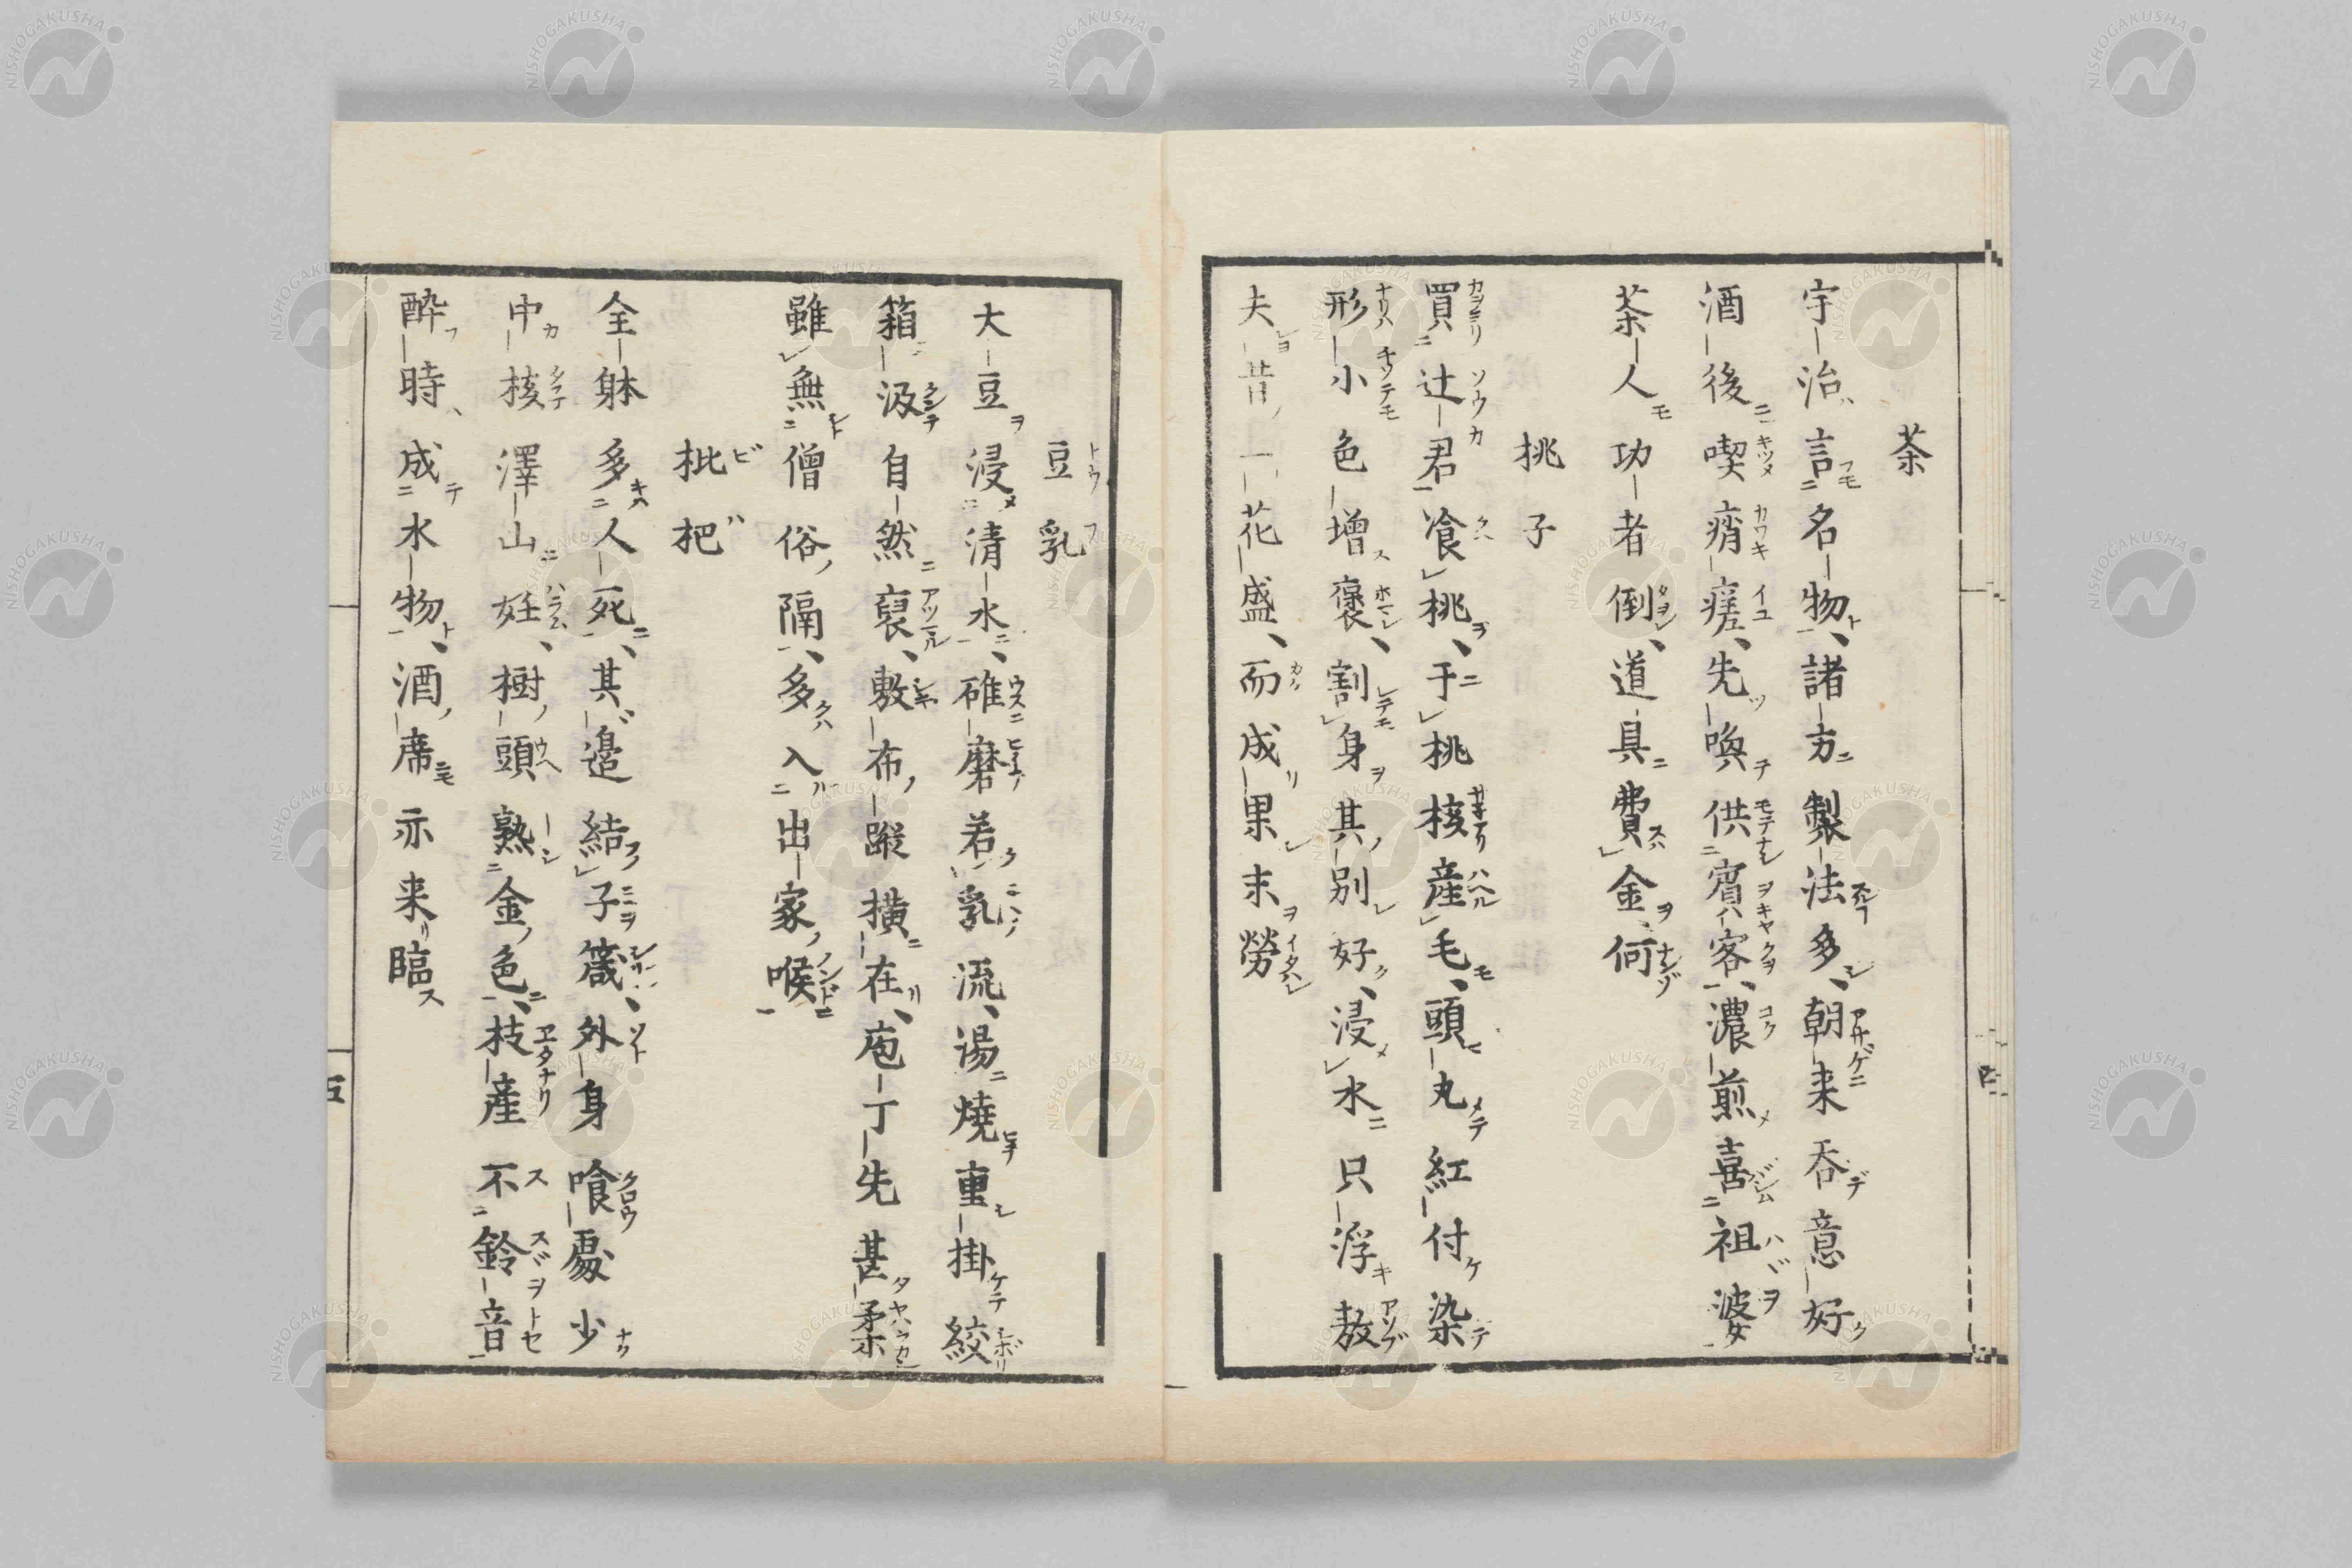 茶
宇治言名物諸方製法多朝来呑意好
酒後喫痟瘥先喚供賓客濃煎喜祖婆
茶人功者倒道具費金何
桃子
買辻君飡桃于桃核産毛頭丸紅付染
形小色増褒割身其別好浸水只浮敖
夫昔一花盛而成果末勞
豆乳
大豆浸清水碓磨若乳流湯燒重掛絞
箱汲自然裒敷布蹤横在庖丁先甚柔
雖無僧俗隔多入出家喉
枇杷
全躰多人死其邉結子箴外身喰處少
中核澤山妊樹頭熟金色枝産不鈴音
酔時成水物酒席亦来臨
NISHOGAKUSHA